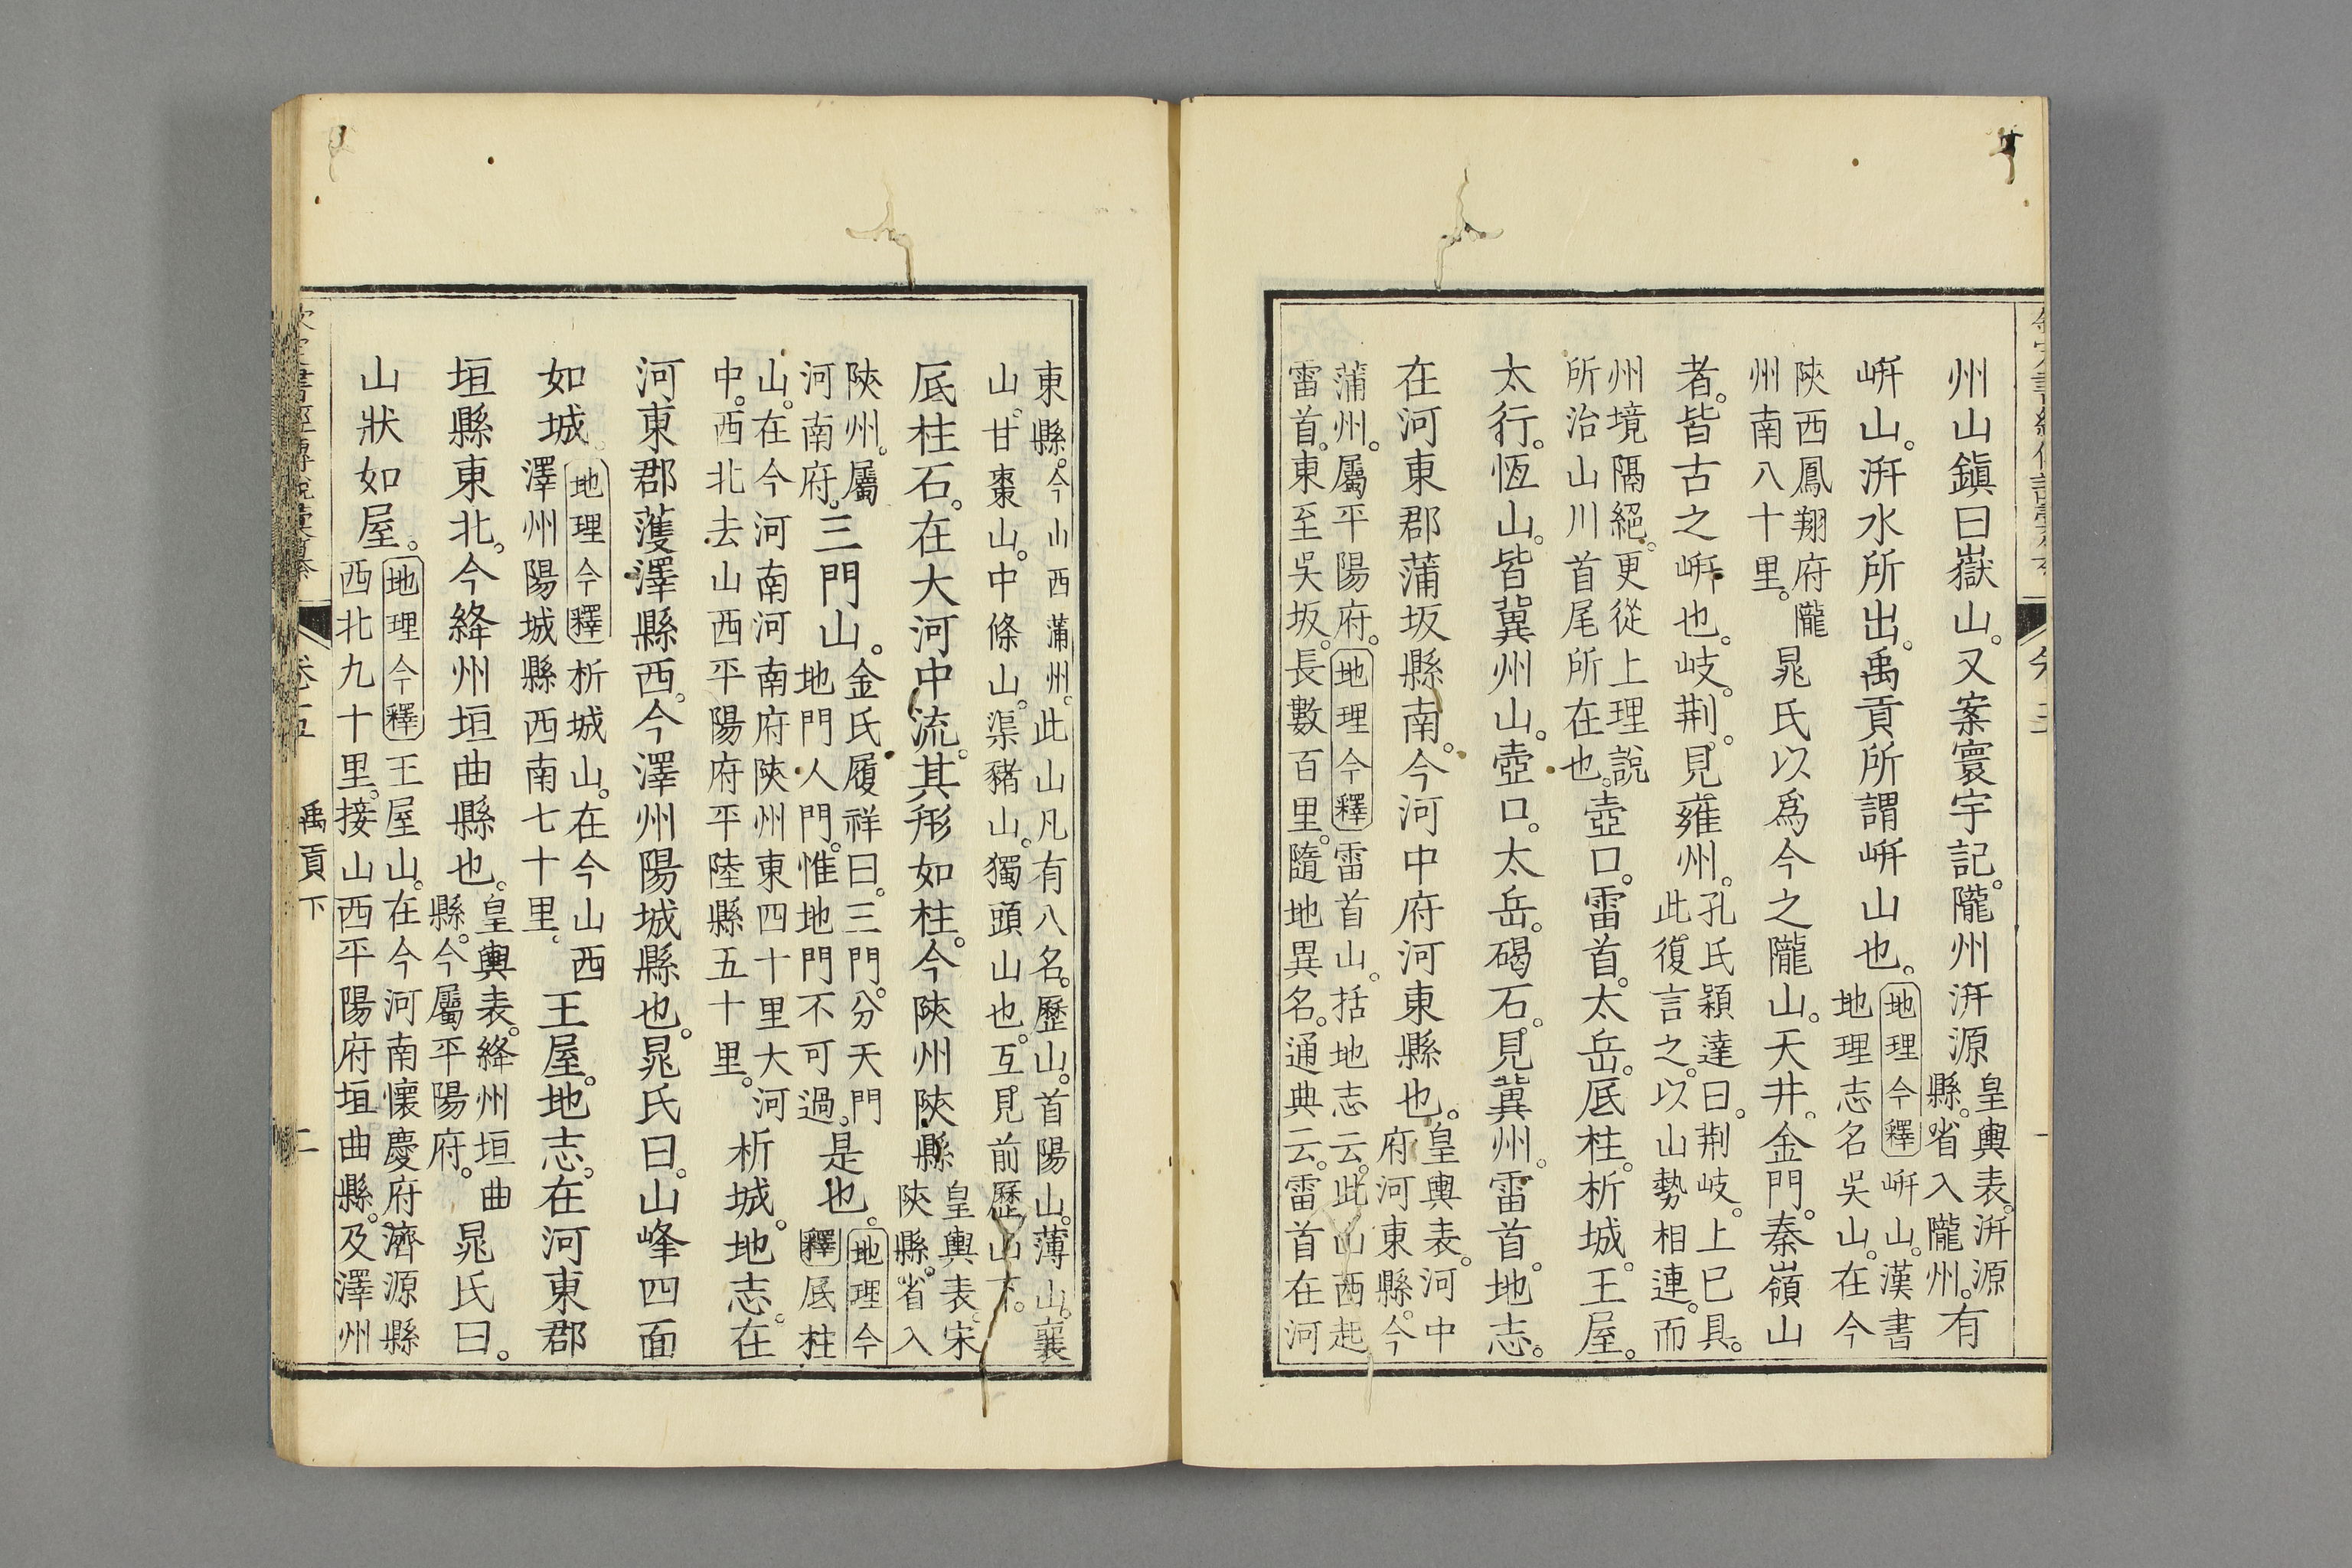 州山鎭曰嶽山。又案寰宇記。隴州汧源皇輿表。汧源縣。省入隴州。有
岍山。汧水所出。禹貢所謂岍山也。地理今釋岍山。漢書地理志名吳山。在今
陜西鳳翔府隴州南八十里。晁氏以爲今之隴山。天井。金門。秦嶺山
者。皆古之岍也。岐。荆。見雍州。孔氏穎達曰。荆岐。上已具。此復言之。以山勢相連。而
州境隔絕。更從上理說所治山川首尾所在也。壺口。雷首。太岳。厎柱。析城。王屋。
太行。恆山。皆冀州山。壺口。太岳。碣石。見冀州。雷首。地志。
在河東郡蒲坂縣南。今河中府河東縣也。皇輿表。河中府河東縣。今
蒲州。屬平陽府。地理今釋雷首山。括地志云。此山西起雷首。東至吳坂。長數百里。隨地異名。通典云。雷首在河
東縣。今山西蒲州。此山凡有八名。歷山。首陽山。薄山。襄山。甘棗山。中條山。渠豬山。獨頭山也。互見前歷山下。
厎柱石。在大河中流。其形如柱。今陜州陜縣皇輿表。宋陜縣。省入
陜州。屬河南府。三門山。金氏履祥曰。三門。分天門地門人門。惟地門不可過。是也。地理今釋厎柱
山。在今河南河南府陜州東四十里大河中。西北去山西平陽府平陸縣五十里。析城。地志。在
河東郡濩澤縣西。今澤州陽城縣也。晁氏曰。山峰四面
如城。地理今釋析城山。在今山西澤州陽城縣西南七十里。王屋。地志。在河東郡
垣縣東北。今絳州垣曲縣也。皇輿表。絳州垣曲縣。今屬平陽府。晁氏曰。
山狀如屋。地理今釋王屋山。在今河南懷慶府濟源縣西北九十里。接山西平陽府垣曲縣。及澤州
禹貢下
二